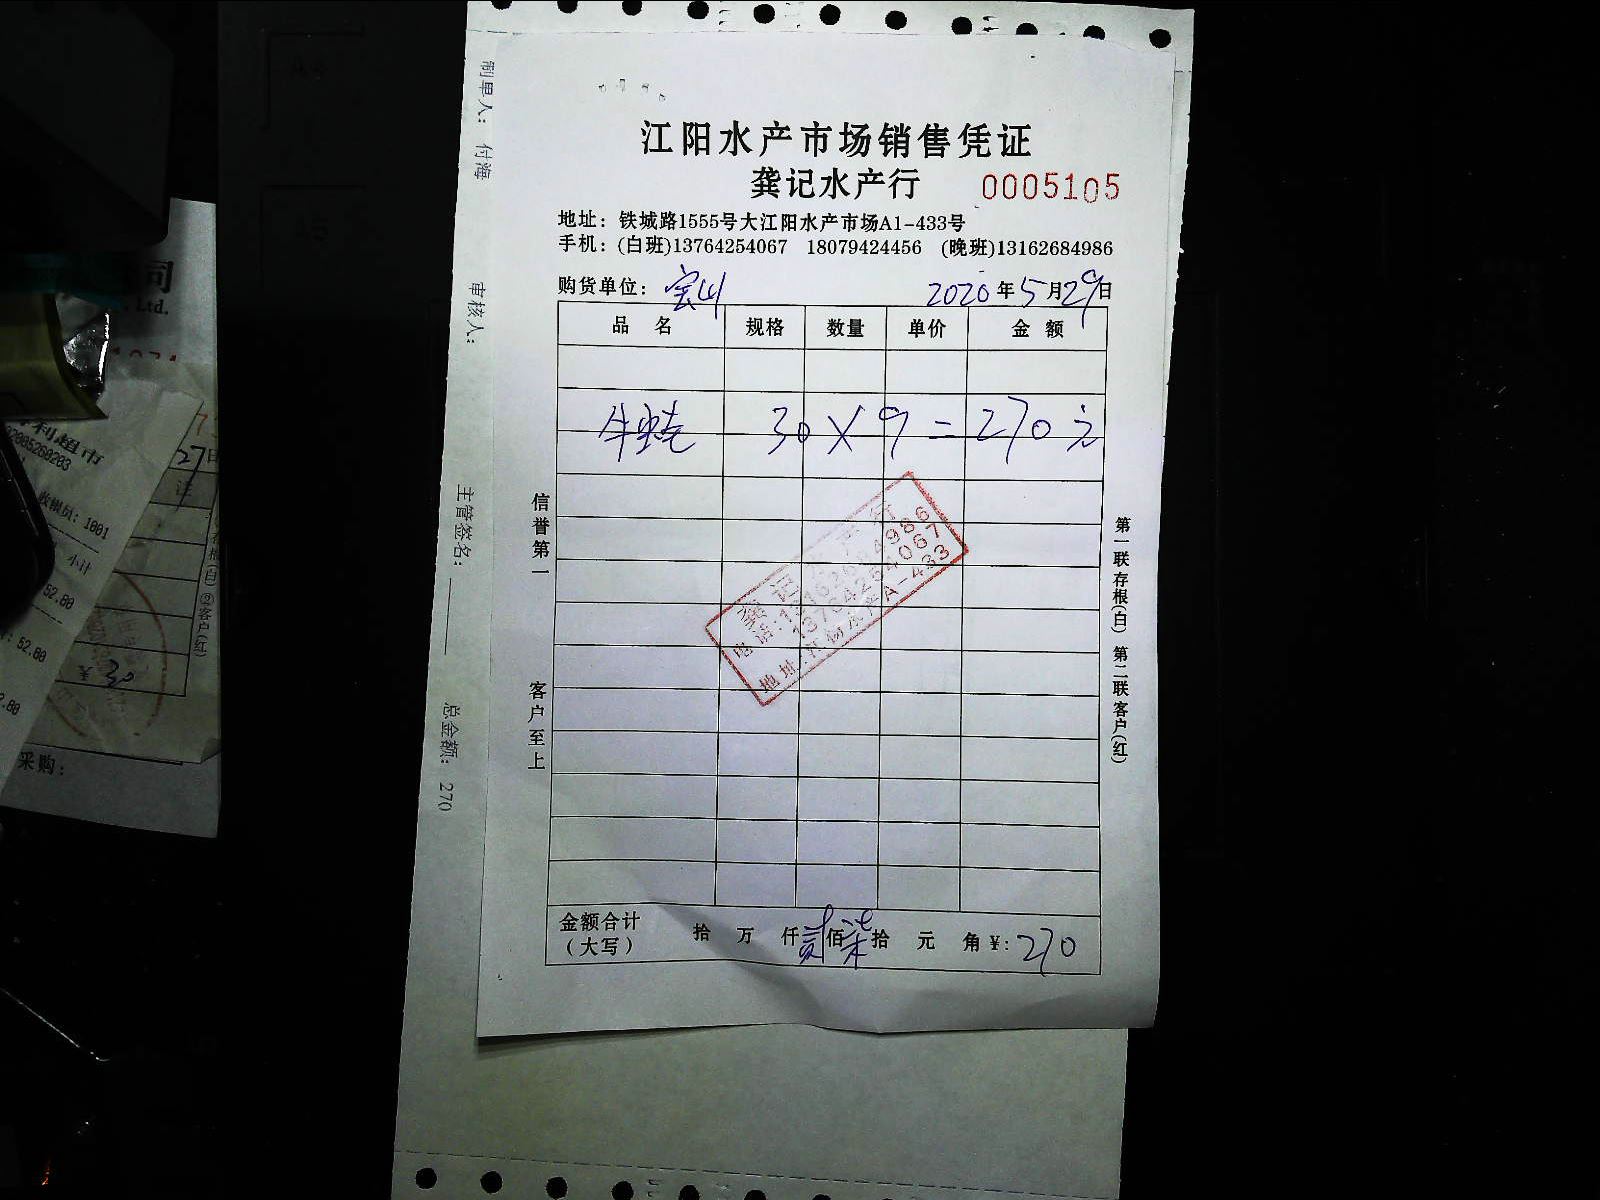 江阳水产市场销售凭证
龚记水产行 0005105
地址：铁城路1555号大江阳水产市场A1-433号
手机：(白班)13764254067 18079424456 (晚班)13162684986
购货单位：宝山 2020年5月29日
品 名 规格 数量 单价 金 额
牛蛙 30 X 9 = 270 元
信誉第一 客户至上
第一联存根(白) 第二联客户(红)
龚记水产行
电话:13162684986
13764254067
地址:江阳水产A-433
金额合计(大写) 拾 万 仟 贰佰 柒拾 元 角 ¥: 270
制单人： 付海 审核人： 主管签名： 总金额： 270
司
. Ltd.
利超市
02005260203
收银员: 1001
小计
52.00
52.00
27日
②客户(红)
采购：